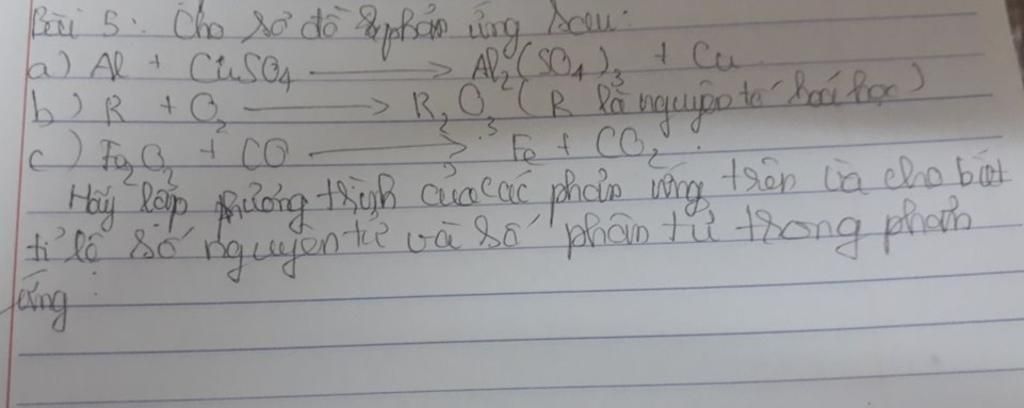 Bài 5: Cho sơ đồ phản ứng sau:
a) Al + CuSO4 → Al2(SO4)3 + Cu
b) R + O2 → R2O3 (R là nguyên tố hoá học)
c) Fe2O3 + CO → Fe + CO2.
Hãy lập phương trình của các phản ứng trên và cho biết
tỉ lệ số nguyên tử và số phân tử trong phản
ứng.